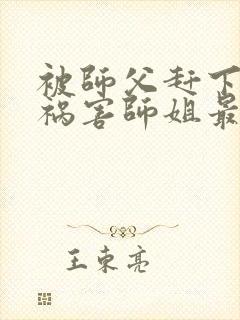 被師父赶下
祸害師姐最
王東亮